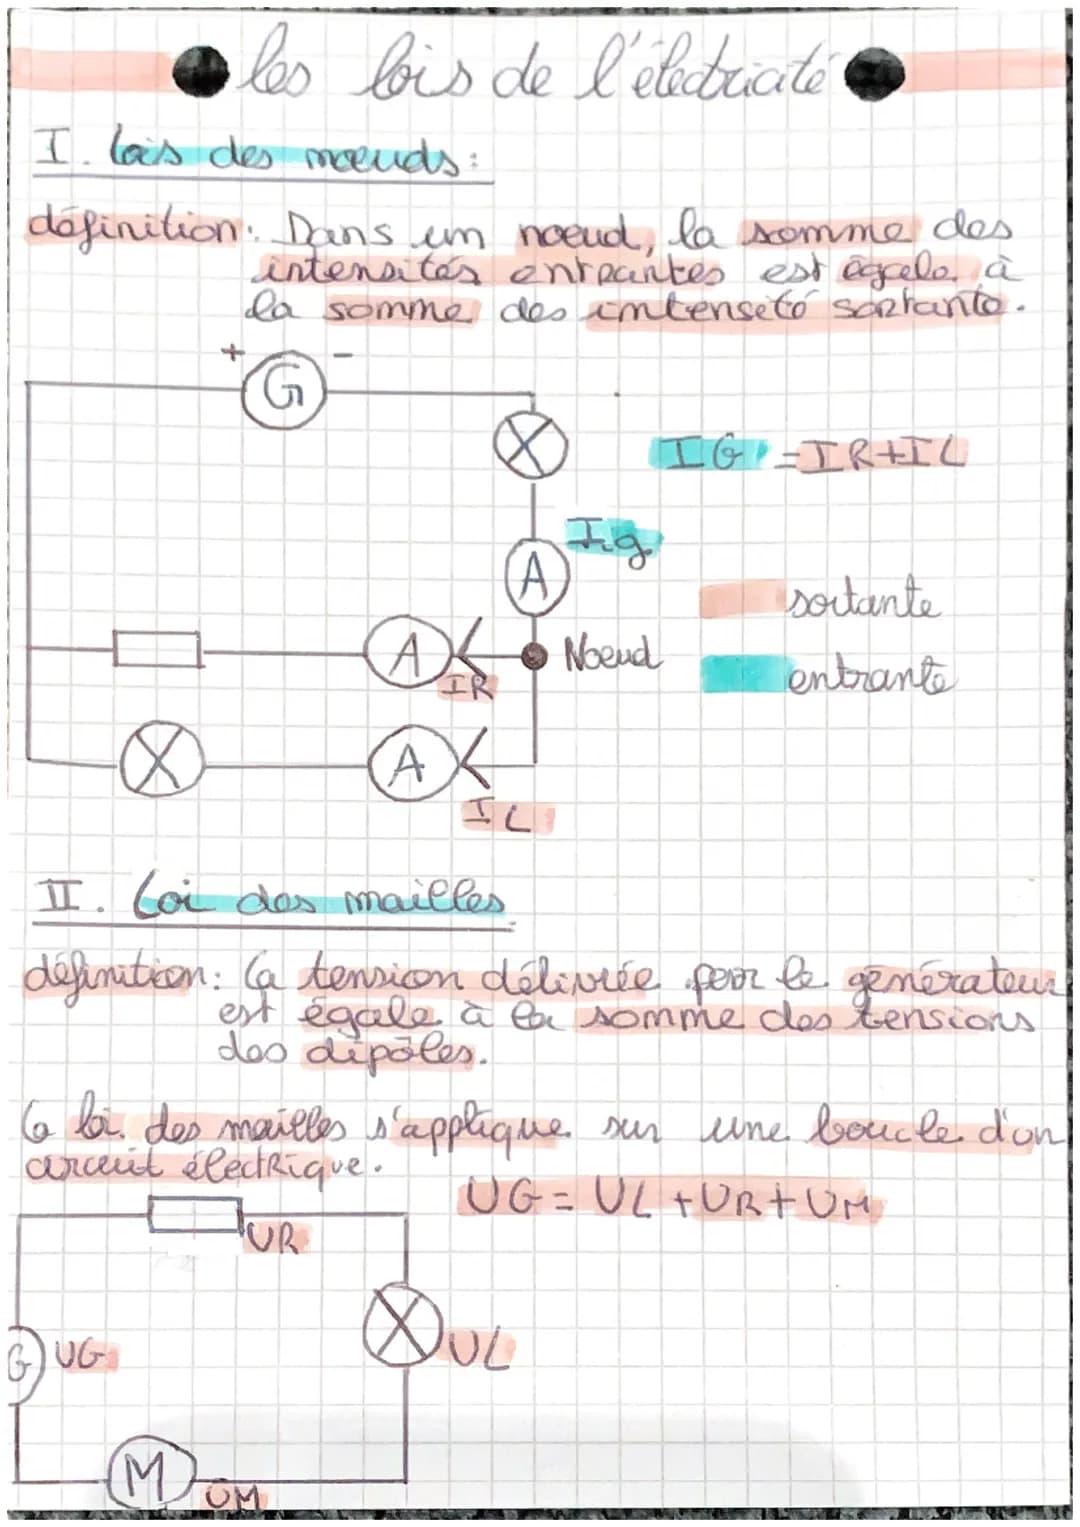 les lois de l'électricité
I. lois des nœuds:
définition: Dans un noeud, la somme des
intensités entrantes est égale à
la somme des intensité sortante.
+ G -
IG = IR+IL
Ig
A
sortante
A Noeud
IR
entrante
A
IL
II. Loi des mailles
définition: La tension délivrée par le générateur
est égale à la somme des tensions
des dipôles.
La loi des mailles s'applique sur une boucle d'un
circuit électrique.
UG = UL + UR + UM
UR
G UG
UL
M
UM